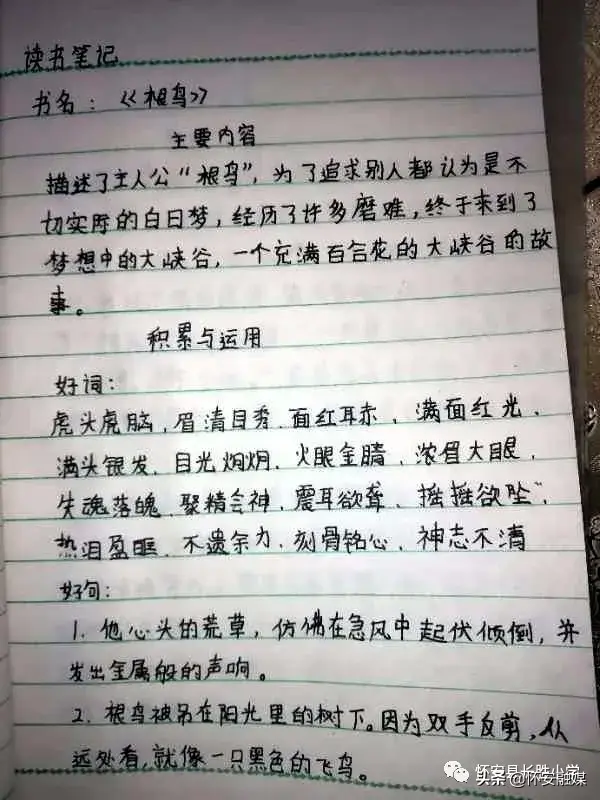 读书笔记
书名：《根鸟》
主要内容
描述了主人公“根鸟”，为了追求别人都认为是不
切实际的白日梦，经历了许多磨难，终于来到了
梦想中的大峡谷，一个充满百合花的大峡谷的故
事。
积累与运用
好词：
虎头虎脑、眉清目秀、面红耳赤、满面红光、
满头银发、目光炯炯、火眼金睛、浓眉大眼、
失魂落魄、聚精会神、震耳欲聋、摇摇欲坠、
热泪盈眶、不遗余力、刻骨铭心、神志不清
好句：
1. 他心头的荒草，仿佛在急风中起伏倾倒，并
发出金属般的声响。
2. 根鸟被吊在阳光里的树下。因为双手反剪，从
远处看，就像一只黑色的飞鸟。
怀安县长胜小学
头条@怀安融媒